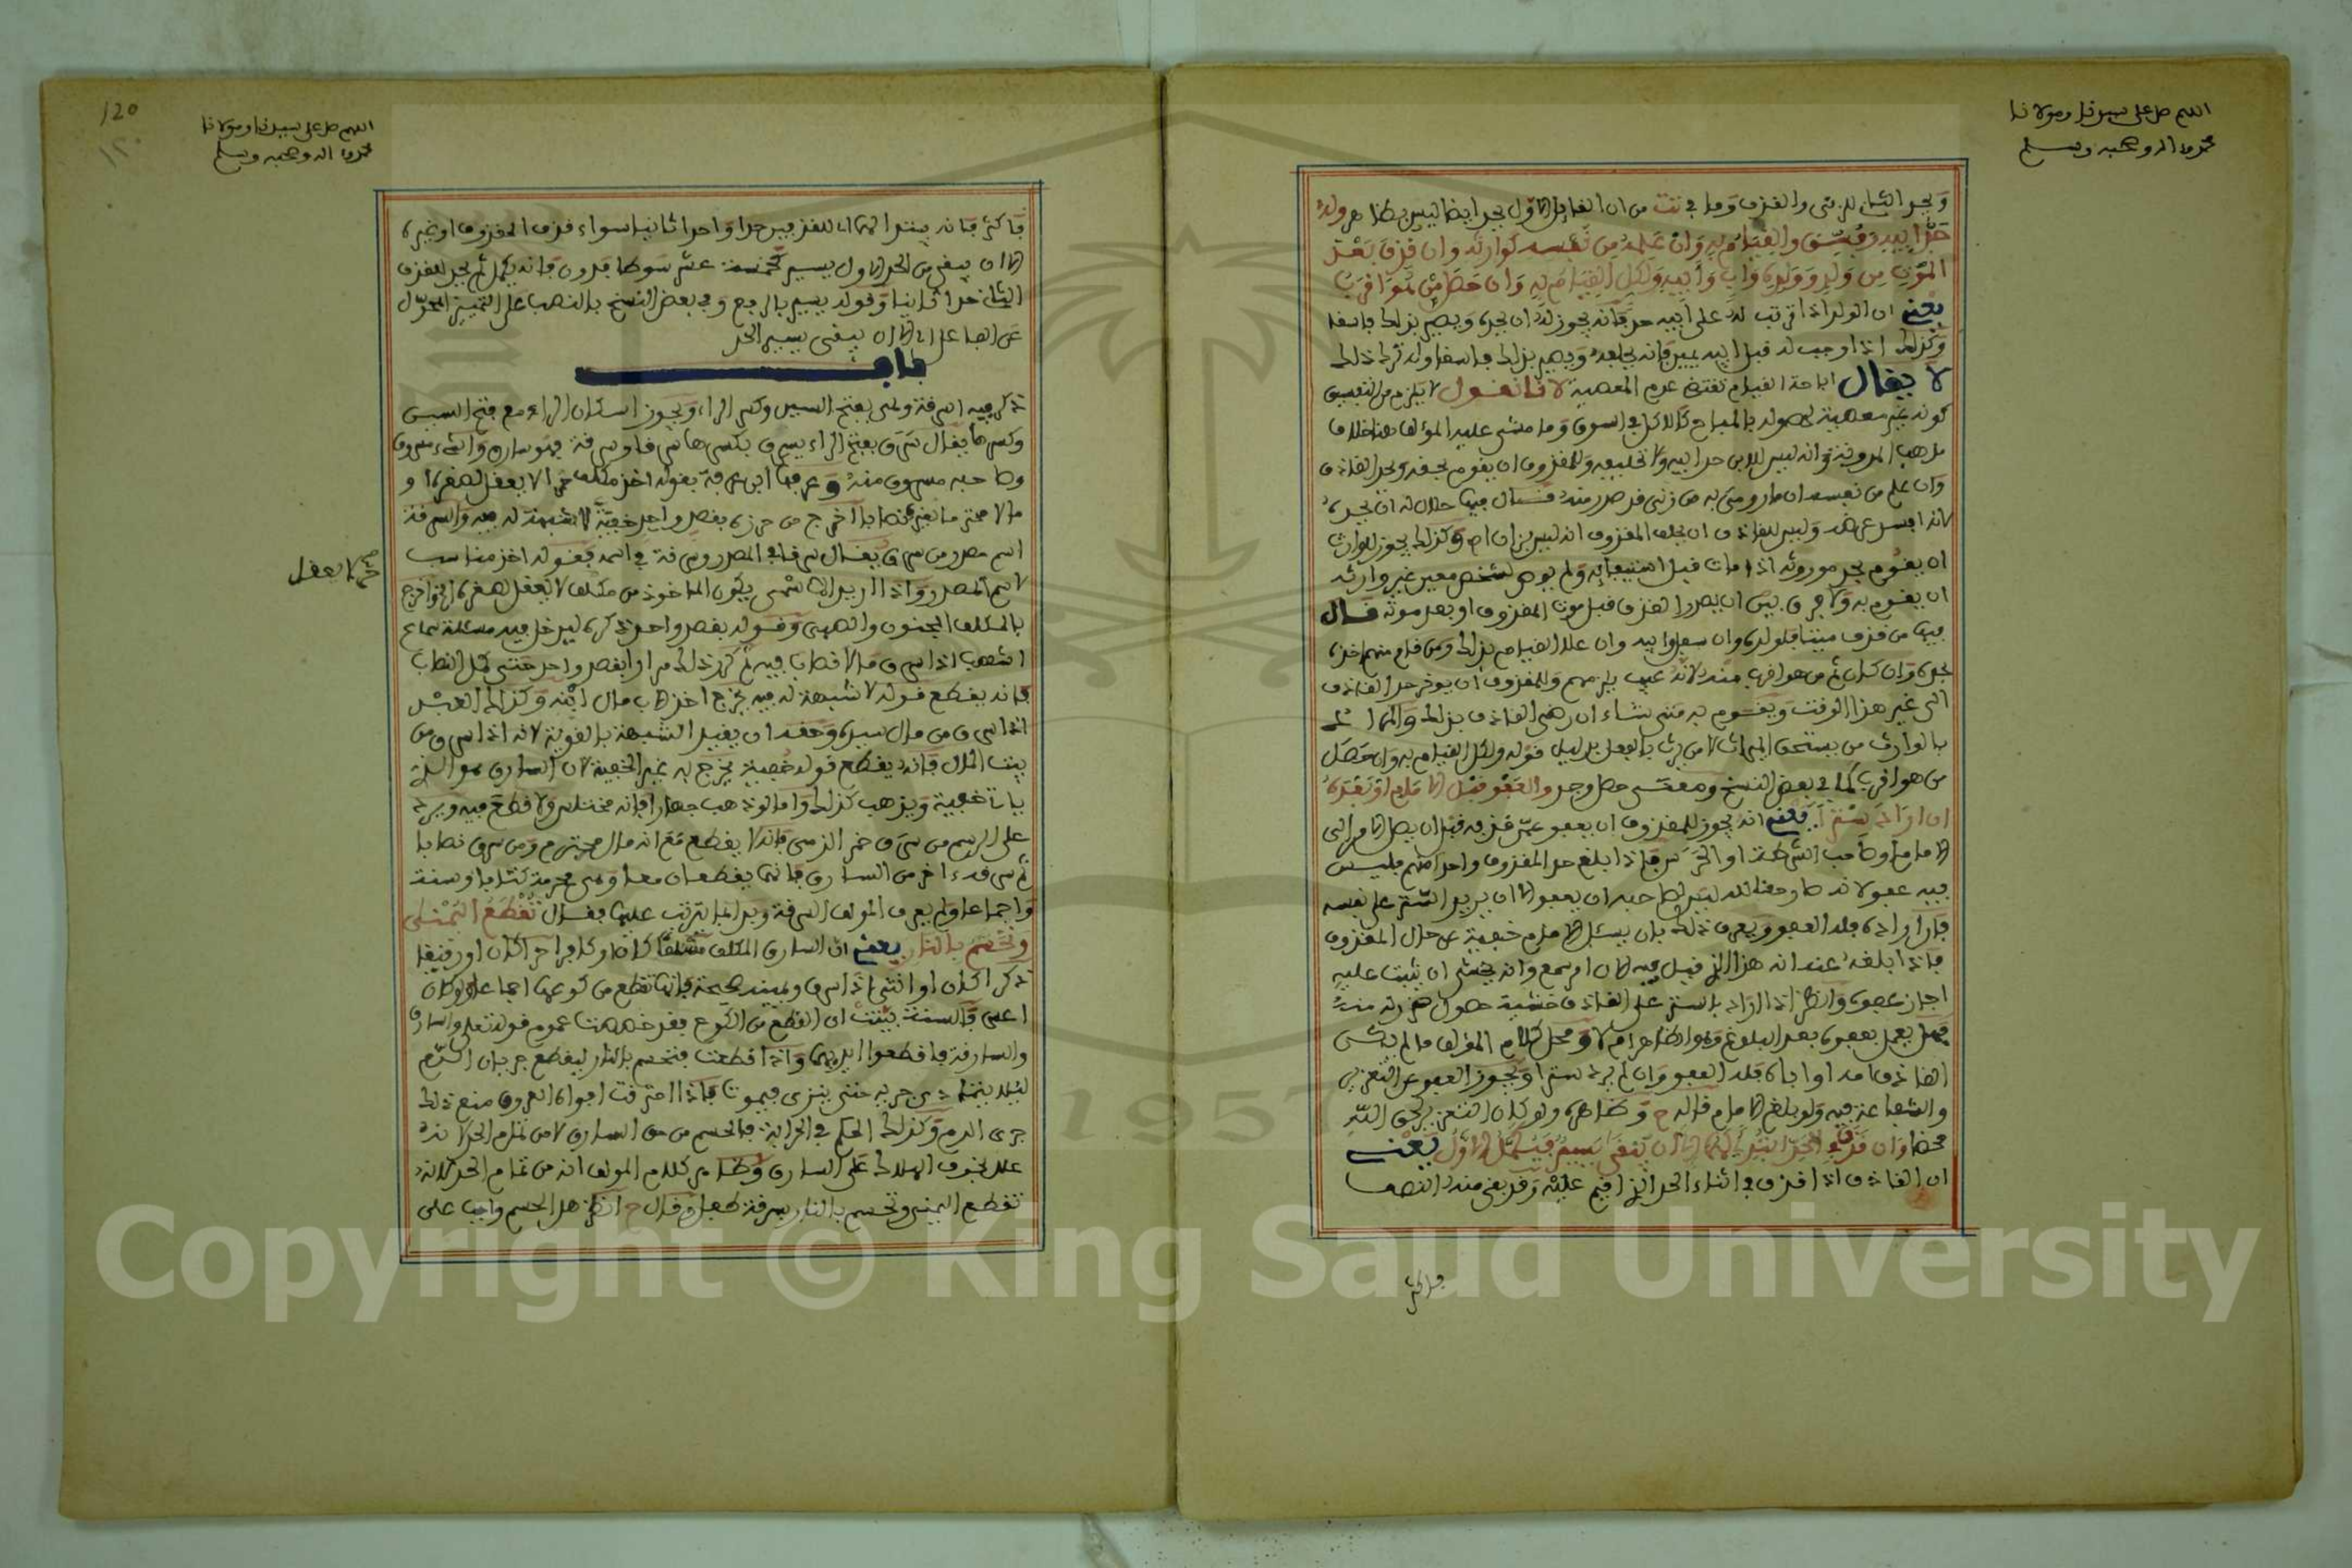 اللهم صل على سيدنا ومولانا
محمد وعلى اله وصحبه وسلم
ويحد الثاني للزنى والقذف وما في تت من ان القائل الاول يحد ايضا ليس بظاهر وله
حد ابيه وفسق والقيام به وان علمه من نفسه كوارثه وان قذف بعد
الموت من ولد وولده واب وابيه ولكل القيام به وان حصل من هو اقرب
يعني ان الولد اذا ترتب له على ابيه حد فانه يجوز له ان يحده ويصير بذلك فاسقا
وكذلك اذا وجب له قبل ابيه يمين فانه يحلفه ويصير بذلك فاسقا وله ترك ذلك
لا يقال اباحة القيام تقتضي عدم المعصية لانا نقول لا يلزم من التفسيق
كونه غير معصية لحصوله بالمباح كالاكل في السوق وما مشى عليه المؤلف هنا خلاف
مذهب المدونة وانه ليس للابن حد ابيه ولا تحليفه وللمقذوف ان يقوم بحقه ويحد القاذف
وان علم من نفسه ان ما رومي به من زنى قد صدر منه قال فيها حلال له ان يحده
لانه افسد عرضه وليس للقاذف ان يحلف المقذوف انه ليس بزان وكذلك يجوز للوارث
ان يقوم بحد موروثه اذا مات قبل استيفائه ولم يوص لشخص معين غير وارثه
ان يقوم به ولا فرق بين ان يصدر القذف قبل موت المقذوف او بعد موته قال
فيها من قذف ميتا فلولده وان سفل وابيه وان علا القيام بذلك ومن قام منهم اخذه
بحده وان كان ثم من هو اقرب منه لانه عيب يلزمهم وللمقذوف ان يؤخر حد القاذف
الى غير هذا الوقت ويقوم به متى شاء ان رضي القاذف بذلك والمراد
بالوارث من يستحق الميراث لا من يرث بالفعل بدليل قوله ولكل القيام به وان حصل
من هو اقرب كما في بعض النسخ ومعنى حصل وجد والعفو قبل الامام او بعده
ان اراد سترا يعني انه يجوز للمقذوف ان يعفو عمن قذفه قبل ان يصل الامر الى
الامام او صاحب الشرطة او الحرس فاذا بلغ حد المقذوف واحدا منهم فليس
فيه عفو لانه صار حقا لله ليس لصاحبه ان يعفو الا ان يريد الستر على نفسه
فان اراده فله العفو ويعرف ذلك بان يسئل الامام خفية عن حال المقذوف
فاذا بلغه عنه انه هذا الذي قيل فيه الان امر سمع وانه يخشى ان يثبت عليه
اجاز عفوه وانظر اذا اراد بالستر على القاذف خشية حصول ضرر له منه
فهل يعمل بعفوه بعد البلوغ وهو الظاهر ام لا ومحل كلام المؤلف ما لم يكن
القاذف اما او ابا فله العفو وان لم يرد سترا ويجوز العفو عن التعزير
والشفاعة فيه ولو بلغ الامام قاله ح وظاهره ولو كان التعزير لحق الله
محضا وان قذف في الحد ابتدئ لهما الا ان يبقى يسير فيكمل الاول يعني
ان القاذف اذا قذف في اثناء الحد الذي اقيم عليه وقد بقي منه النصف
فاكثر
120
١٢٠
اللهم صل على سيدنا ومولانا
محمد وعلى اله وصحبه وسلم
فاكثر فانه يبتدا لهما اي للقذفين حدا واحدا ثانيا سواء قذف المقذوف او غيره
الا ان يبقى من الحد الاول يسير كخمسة عشر سوطا فدون فانه يكمل ثم يحد للقذف
الثاني حدا ثانيا وقوله يسير بالرفع وفي بعض النسخ بالنصب على التمييز المحول
عن الفاعل اي الا ان يبقى يسير الحد
باب
ذكر فيه السرقة وهي بفتح السين وكسر الراء ويجوز اسكان الراء مع فتح السين
وكسرها يقال سرق بفتح الراء يسرق بكسرها سرقا وسرقة فهو سارق والشيء مسروق
وصاحبه مسروق منه وعرفها ابن عرفة بقوله اخذ مكلف حرا لا يعقل لصغره او
مالا محترما لغيره نصابا اخرج من حرزه بقصد واحد خفية لا شبهة له فيه والسرقة
اسم مصدر من سرق يقال سرقا في المصدر وسرقة في اسمه فقوله اخذ مناسب
لاسم المصدر واذا اريد الاسمى يكون الماخوذ من مكلف لا يعقل لصغره الخ واخرج
بالمكلف المجنون والصبي وقوله بقصد واحد ذكره ليدخل فيه مسئلة سماع
اشهب اذا سرق ما لا نصابا فيه ثم كرر ذلك مرارا بقصد واحد حتى كمل النصاب
فانه يقطع قوله لا شبهة له فيه يخرج اخذ الاب مال ابنه وكذلك العبد
اذا سرق من مال سيده وحقه ان يقيد الشبهة بالقوية لانه اذا سرق من
بيت المال فانه يقطع قوله خفية يخرج به غير الخفية لان السارق هو الذي
ياتي خفية ويذهب كذلك واما لو ذهب جهارا فانه مختلس ولا قطع فيه ويرد
على الرسم من سرق خمر الذمي فانه لا يقطع مع انه مال محترم ومن سرق نصابا
ثم سرقه اخر من السارق فانهما يقطعان معا وهي محرمة كتابا وسنة
واجماعا ولم يعرف المؤلف السرقة وبدا بما يترتب عليها فقال تقطع اليمنى
وتحسم بالنار يعني ان السارق المكلف مسلما كان او كافرا حرا كان او رقيقا
ذكرا كان او انثى اذا سرق ويمينه صحيحة فانها تقطع من كوعها اجماعا ولو كان
اعسر فالسنة بينت ان القطع من الكوع فقد خصصت عموم قوله تعلى والسارق
والسارقة فاقطعوا ايديهما واذا قطعت فتحسم بالنار لينقطع جريان الدم
ليلا يتمادى جريه حتى ينزى فيموت فاذا احترقت افواه العروق منع ذلك
جرى الدم وكذلك الحكم في الحرابة فالحسم من حق السارق لا من تمام الحد لانه
علل بخوف الهلاك على السارق وظاهر كلام المؤلف انه من تمام الحد لانه
تقطع اليمين وتحسم بالنار وقال ح انظر هل الحسم واجب على
حرا لا يعقل
صح